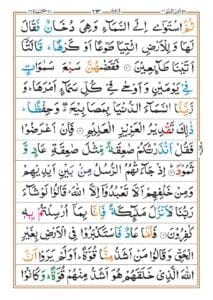 ثُمَّ اسْتَوٰٓى اِلَى السَّمَآءِ وَهِىَ دُخَانٌ فَقَالَ
لَهَا وَلِلْاَرْضِ ائْتِيَا طَوْعًا اَوْ كَرْهًا ؕ قَالَتَاۤ
اَتَيْنَا طَآئِعِيْنَ ۝ فَقَضٰهُنَّ سَبْعَ سَمٰوَاتٍ
فِىْ يَوْمَيْنِ وَاَوْحٰى فِىْ كُلِّ سَمَآءٍ اَمْرَهَا ؕ وَ
زَيَّنَّا السَّمَآءَ الدُّنْيَا بِمَصَابِيْحَ ۖ وَحِفْظًا ؕ
ذٰلِكَ تَقْدِيْرُ الْعَزِيْزِ الْعَلِيْمِ ۝ فَاِنْ اَعْرَضُوْا
فَقُلْ اَنْذَرْتُكُمْ صٰعِقَةً مِّثْلَ صٰعِقَةِ عَادٍ وَّ
ثَمُوْدَ ۝ اِذْ جَآءَتْهُمُ الرُّسُلُ مِنْۢ بَيْنِ اَيْدِيْهِمْ
وَمِنْ خَلْفِهِمْ اَلَّا تَعْبُدُوْۤا اِلَّا اللّٰهَ ؕ قَالُوْا لَوْ شَآءَ
رَبُّنَا لَاَنْزَلَ مَلٰٓئِكَةً فَاِنَّا بِمَاۤ اُرْسِلْتُمْ بِهٖ
كٰفِرُوْنَ ۝ فَاَمَّا عَادٌ فَاسْتَكْبَرُوْا فِى الْاَرْضِ بِغَيْرِ
الْحَقِّ وَقَالُوْا مَنْ اَشَدُّ مِنَّا قُوَّةً ؕ اَوَلَمْ يَرَوْا اَنَّ
اللّٰهَ الَّذِىْ خَلَقَهُمْ هُوَ اَشَدُّ مِنْهُمْ قُوَّةً ؕ وَكَانُوْا